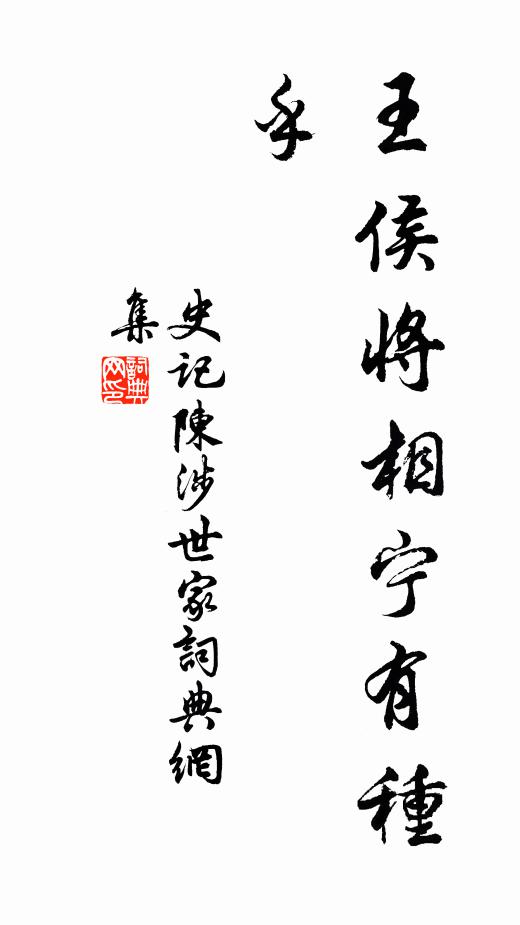 王侯將相宁有種
乎
史記陳涉世家詞典網
集
詞典
网印